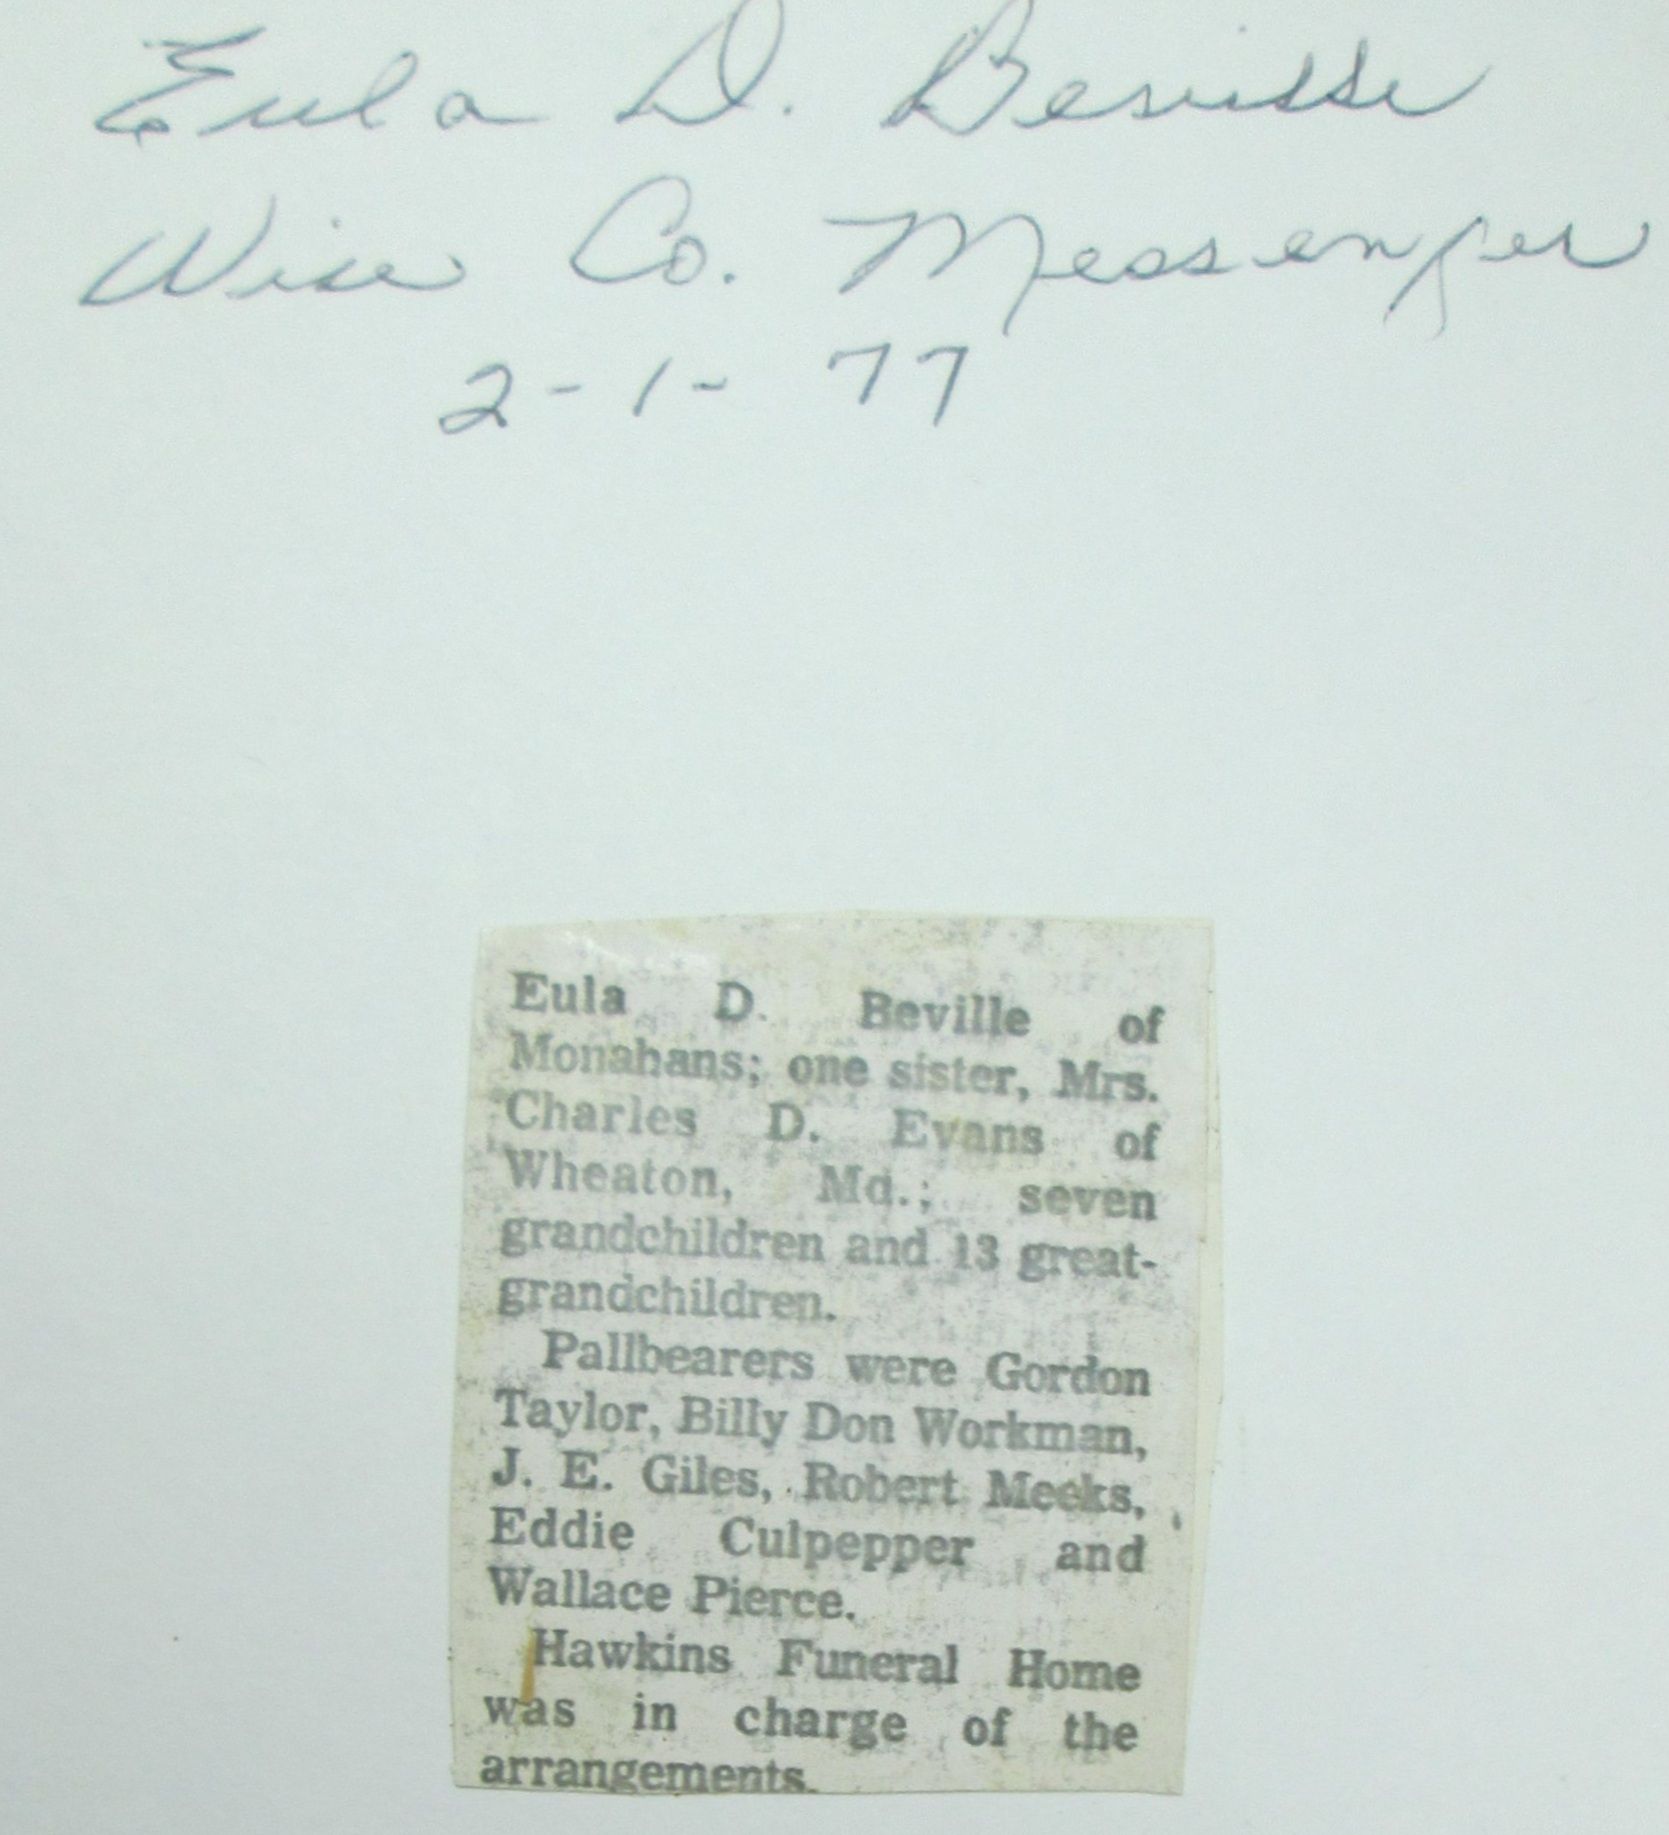 Eula D. Beville
Wise Co. Messenger
2-1-77
Eula D. Beville of
Monahans; one sister, Mrs.
Charles D. Evans of
Wheaton, Md.; seven
grandchildren and 13 great-
grandchildren.
Pallbearers were Gordon
Taylor, Billy Don Workman,
J. E. Giles, Robert Meeks,
Eddie Culpepper and
Wallace Pierce.
Hawkins Funeral Home
was in charge of the
arrangements.